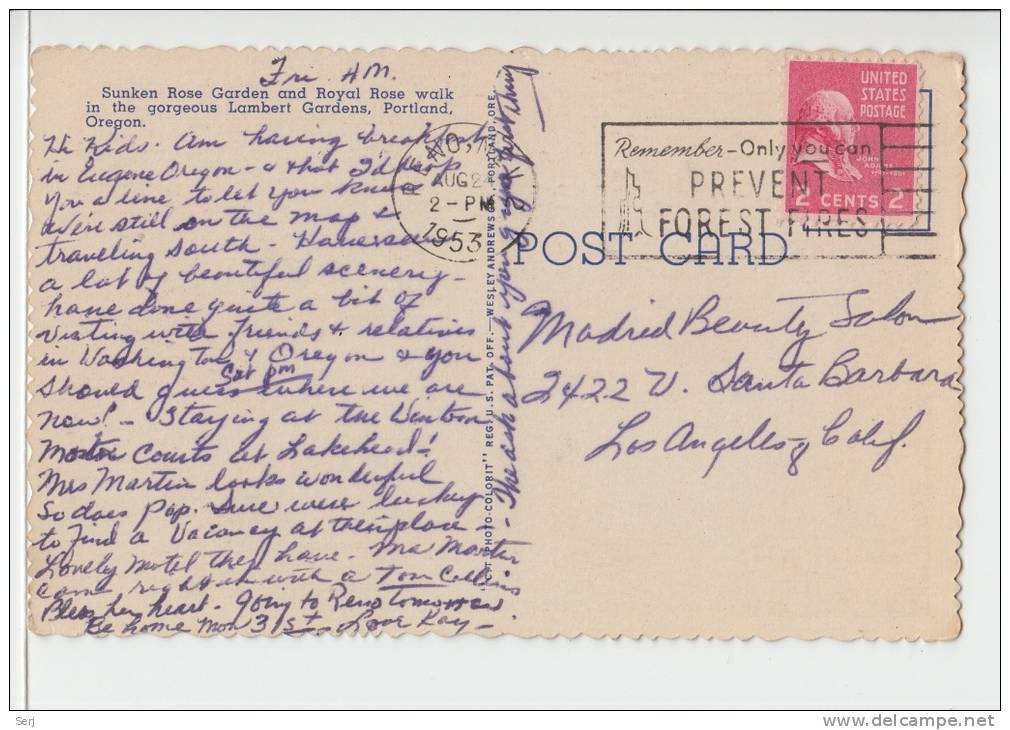 Fri. AM.
Sunken Rose Garden and Royal Rose walk
in the gorgeous Lambert Gardens, Portland,
Oregon.
Hi Kids. Am having breakfast
in Eugene Oregon - & that I'd
you a line to let you know
We're still on the map &
traveling South - Have seen
a lot of beautiful scenery -
have done quite a bit of
visting with friends & relatives
in Washington & Oregon & you
Sat pm
should guess where we are
now! - Staying at the
Motor Courts at Lakehead!
Mrs Martin looks wonderful
So does Pop. Sure were lucky
to find a Vacancy at their place -
Lovely Motel they have. Ma Martin
came right in with a Tom Collins
Bless her heart - going to Reno tomorrow
Be home Mon 31st. Love Kay -
They ask about you first thing
"C.T. PHOTO-COLORIT" REG. U.S. PAT. OFF.—WESLEY ANDREWS CO., PORTLAND, ORE.
AUG 2
2 - PM
1953
Remember - Only you can
PREVENT
FOREST FIRES
UNITED
STATES
POSTAGE
JOHN
ADAMS
2 CENTS 2
POST CARD
Madred Beauty Salon
2422 W. Santa Barbara
Los Angeles, Calif.
Serj
www.delcampe.net